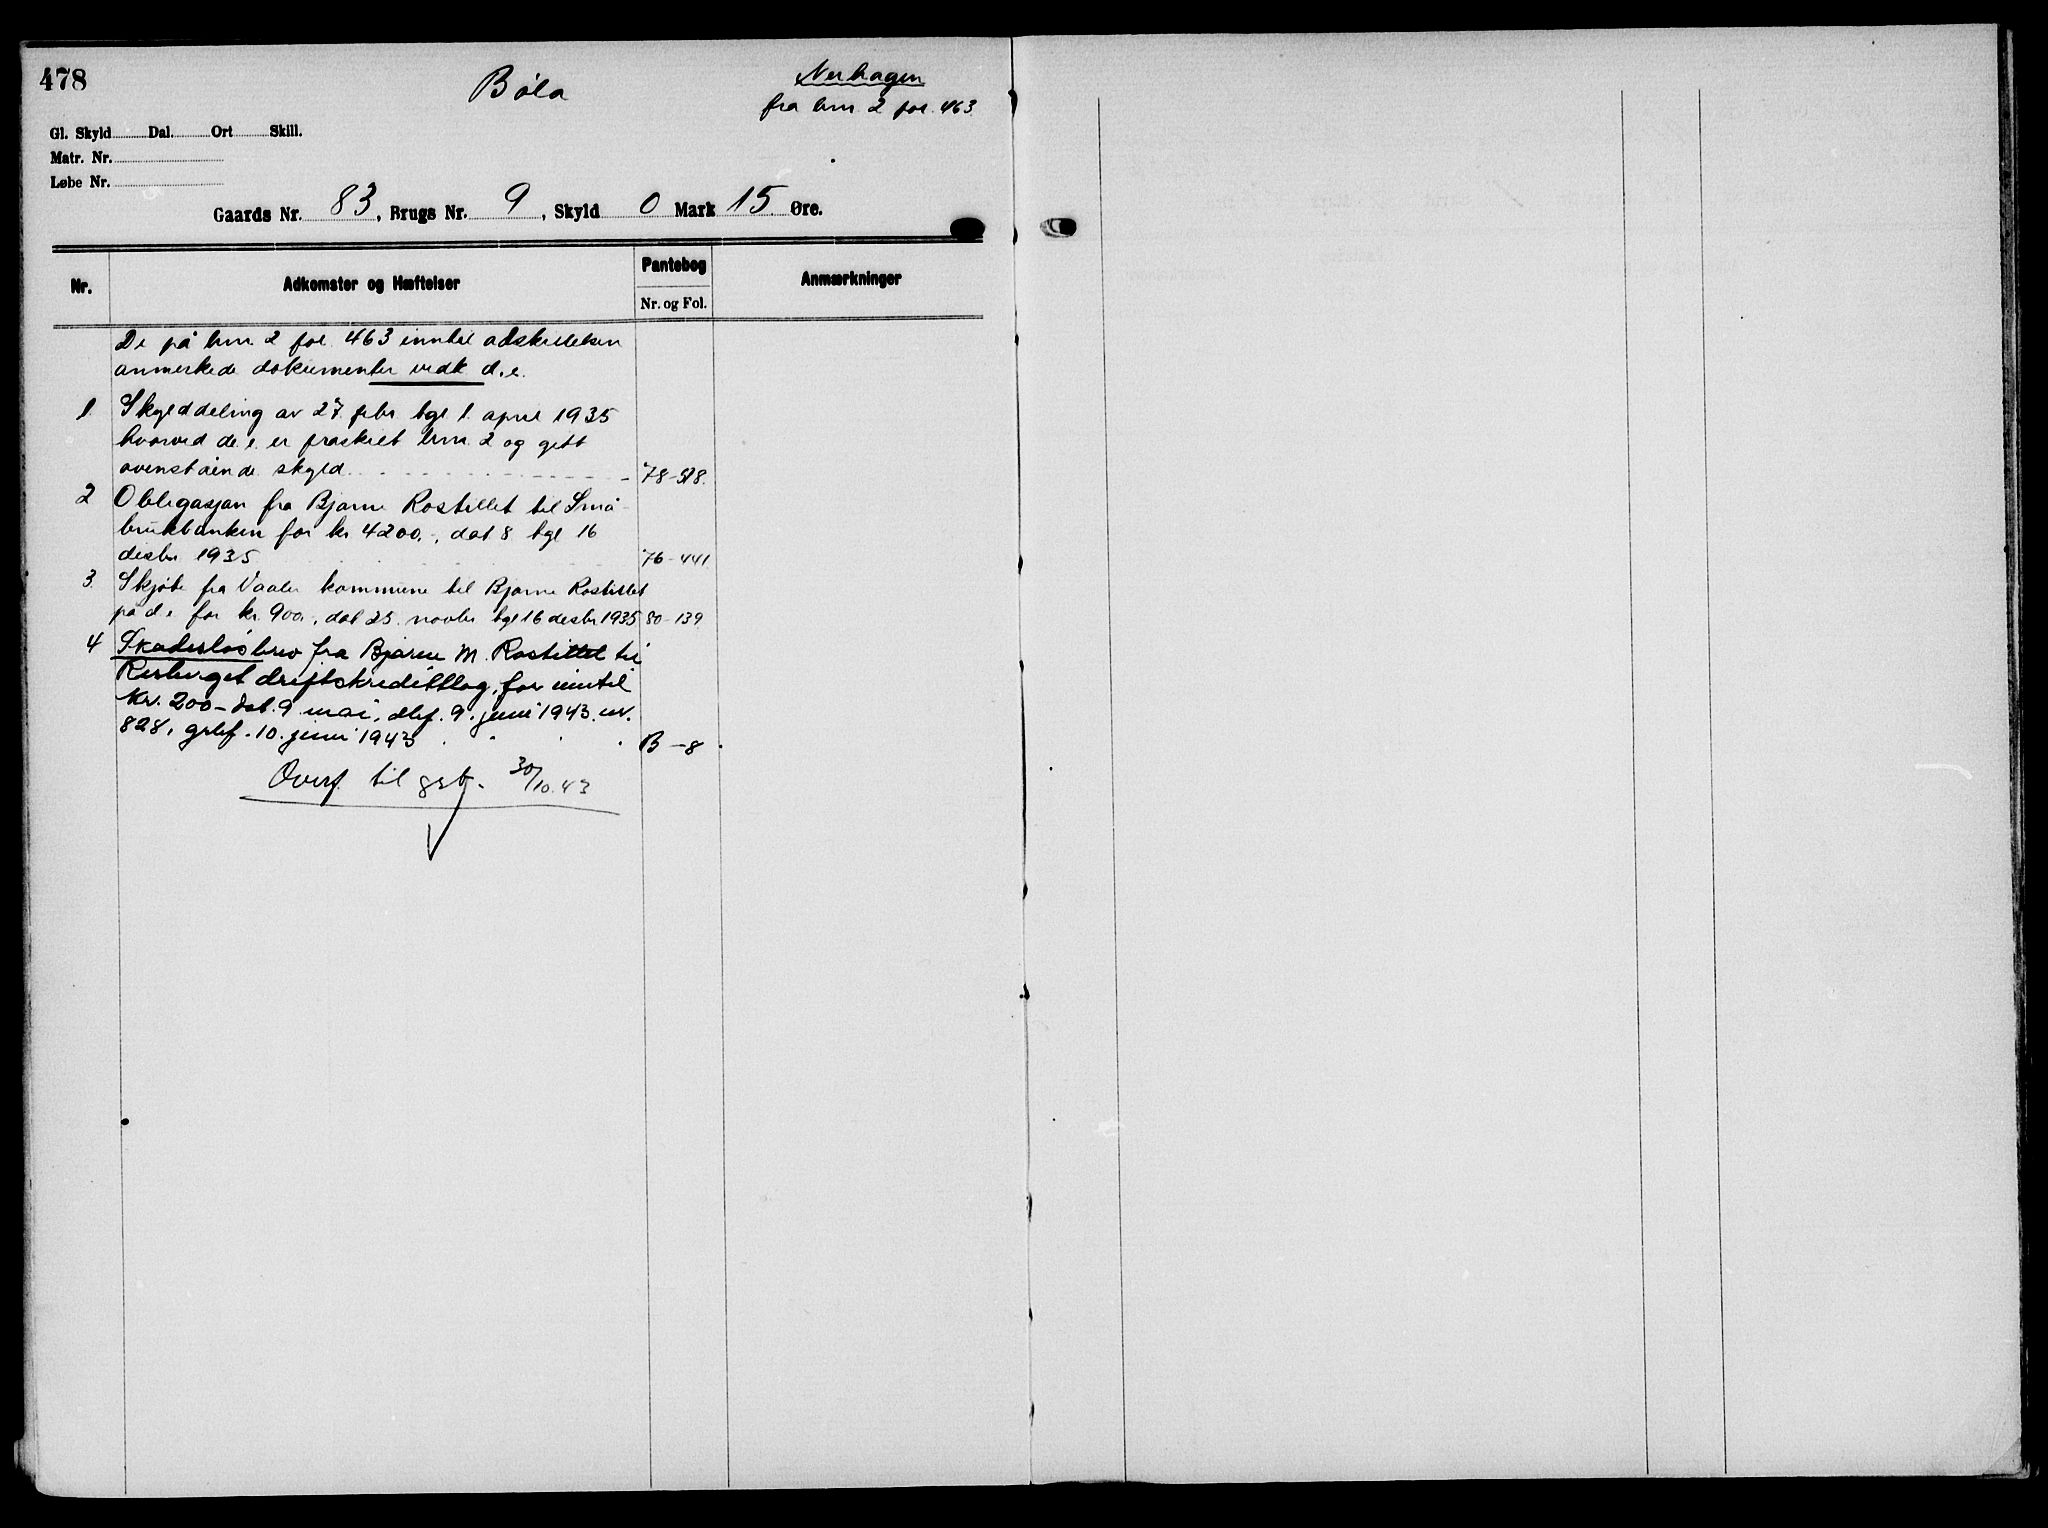 478
Bøla
Nerhagen
fra brn 2 fol. 463
Gl. Skyld Dal. Ort Skill.
Matr. Nr.
Løbe Nr.
Gaards Nr. 83, Brugs Nr. 9, Skyld 0 Mark 15 Øre.
Nr. Adkomster og Hæftelser Pantebog Nr. og Fol. Anmærkninger
De på brn 2 fol. 463 inntil adskillelsen
anmerkede dokumenter vedk d.e.
1 Skylddeling av 27. febr tgl 1. april 1935
hvorved d.e. er fraskilt brn. 2 og gitt
ovenstående skyld. 78-518.
2 Obligasjon fra Bjarne Rostillet til Små-
brukbanken for kr 4200.-, dat 8 tgl 16
desbr 1935 76-441
3. Skjøte fra Vaaler kommune til Bjarne Rostillet
på d.e for kr. 900., dat 25. novbr tgl 16 desbr 1935 80-139
4 Skadesløsbrev fra Bjarne M. Rostillet til
driftskredittlag, for inntil
kr. 200- dat. 9 mai, dbf. 9. juni 1943. nr.
828, grbf. 10. juni 1943 B-8
Overf. til grb. 30/10.43